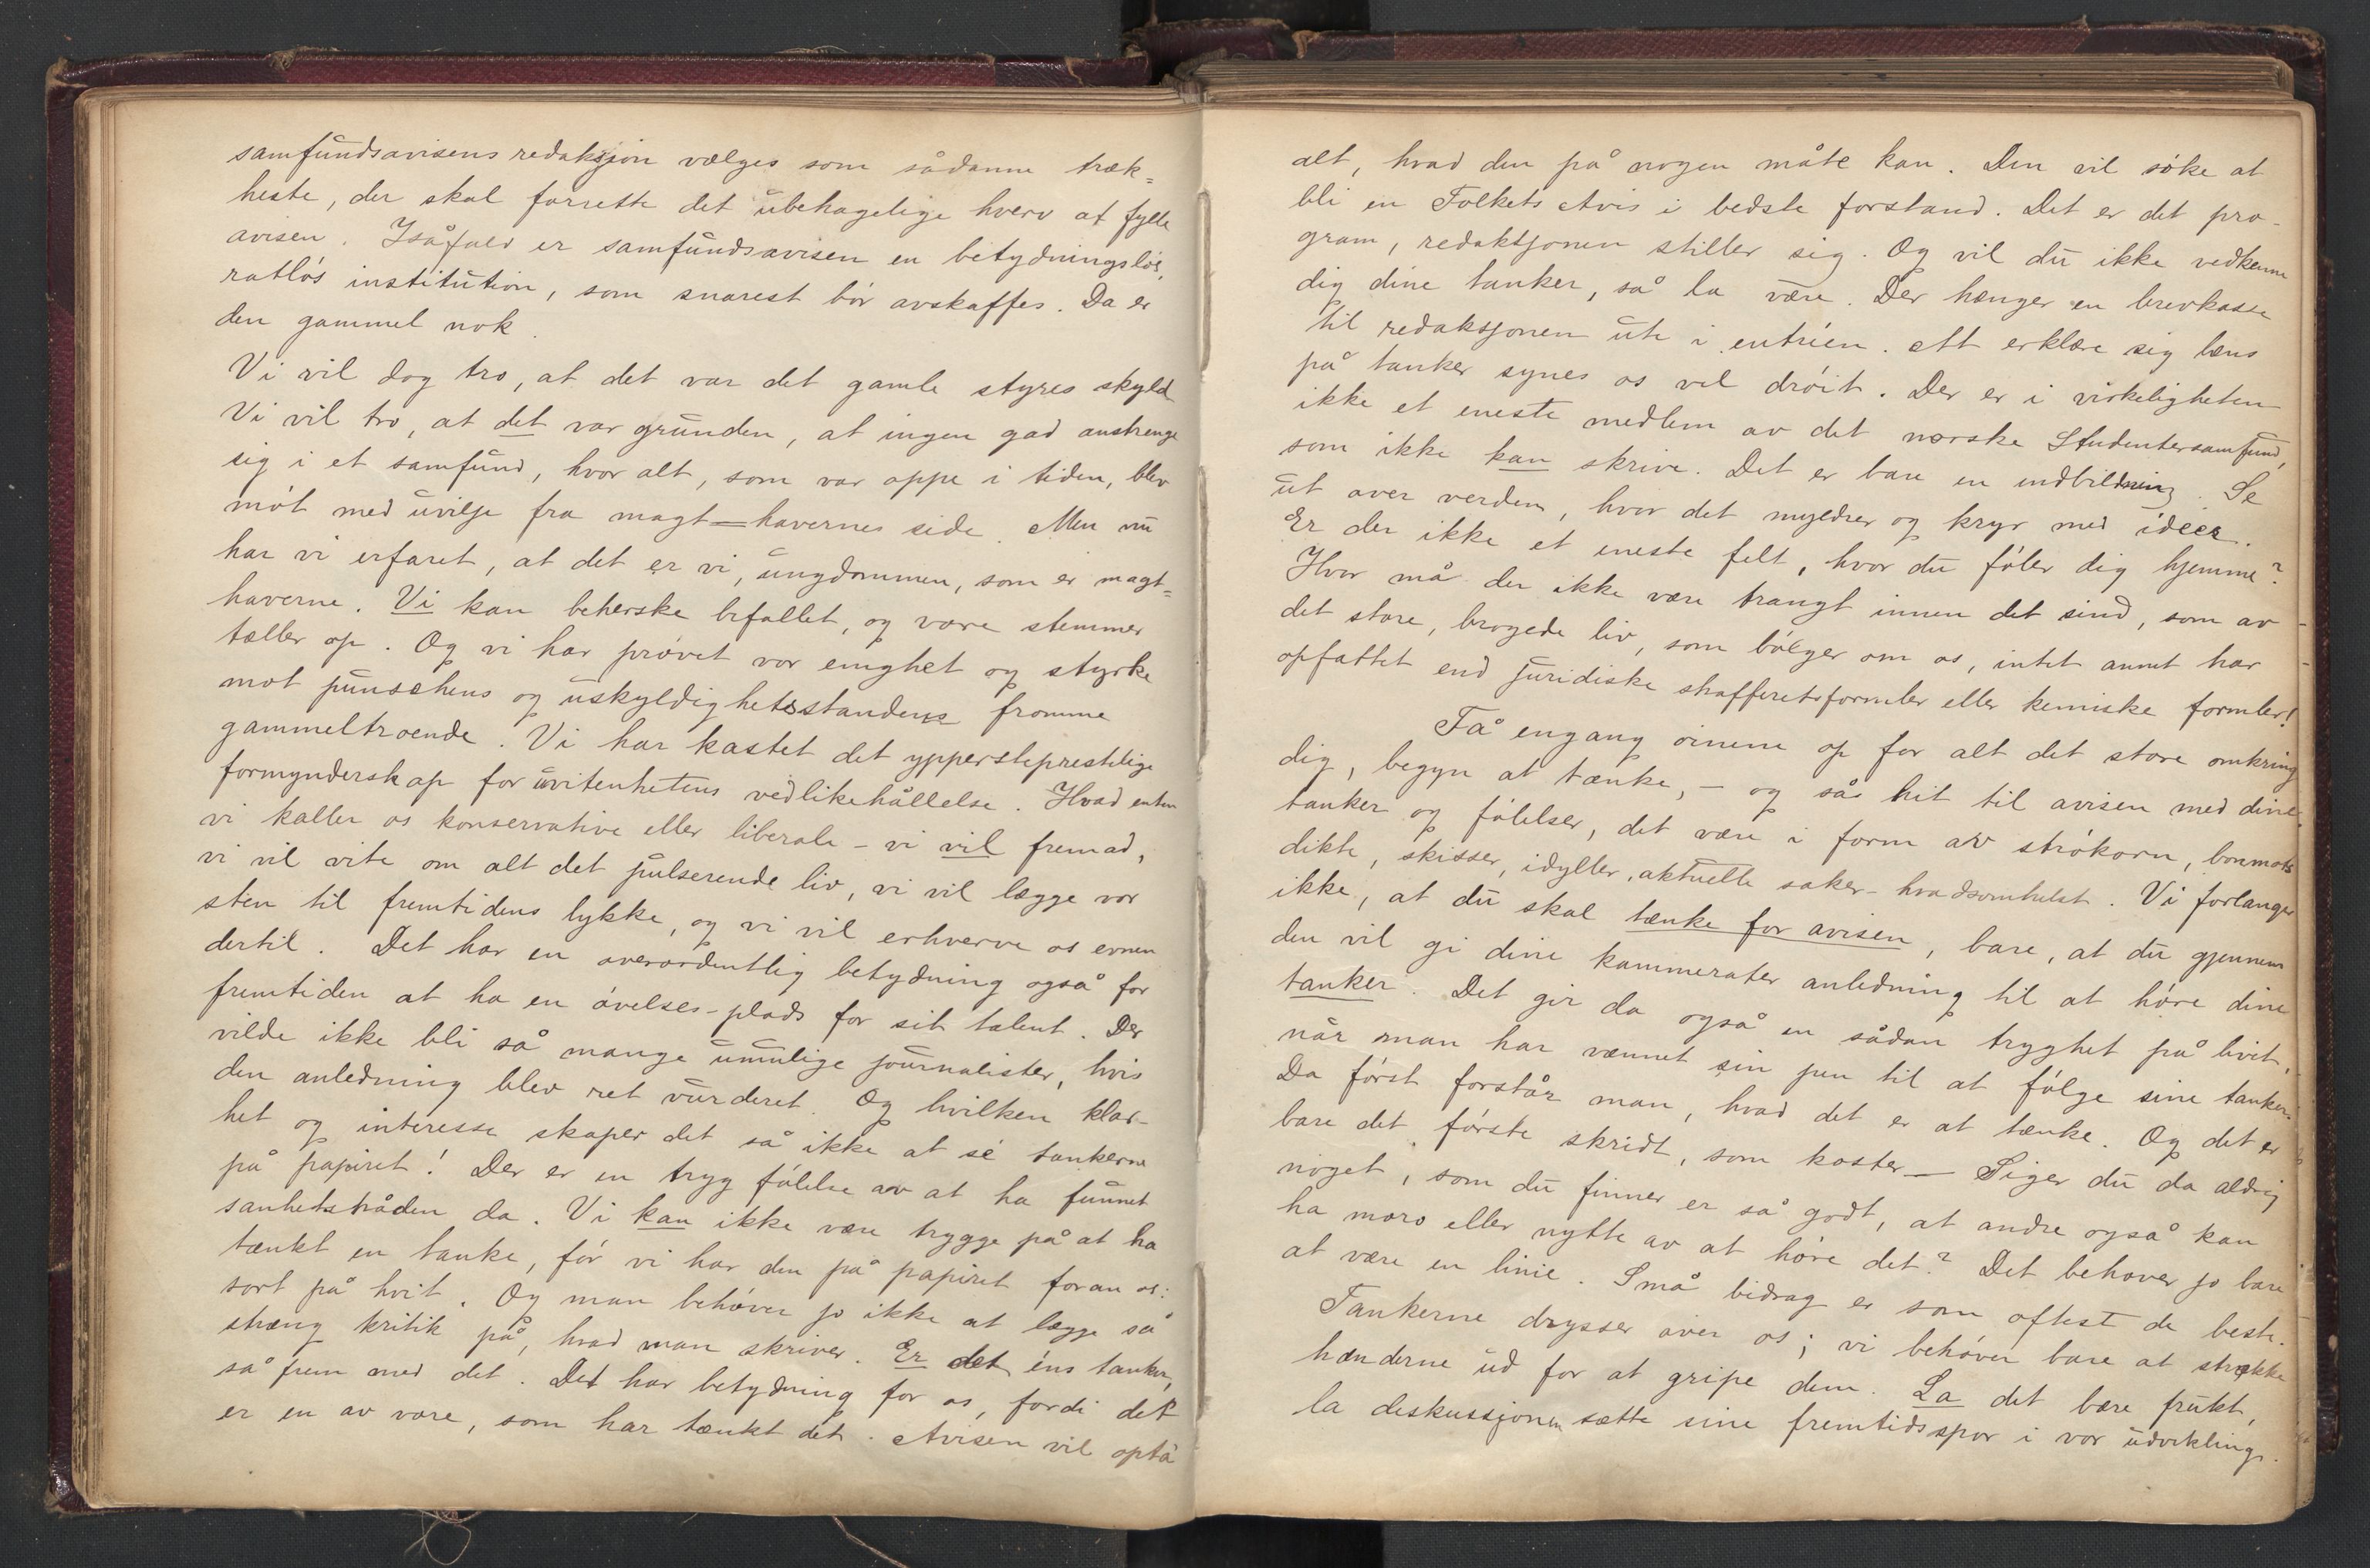 samfundsavisens redaksjon vælges som sådanne træk=
heste, der skal forrette det ubehagelige hverv at fylle
avisen. Isåfald er samfundsavisen en betydningsløs,
ratløs institution, som snarest bør avskaffes. Da er
den gammel nok.
Vi vil dog tro, at det var det gamle styres skyld
Vi vil tro, at det var grunden, at ingen gad anstrenge
sig i et samfund, hvor alt, som var oppe i tiden, blev
møt med uvilje fra magt=havernes side. Men nu
har vi erfaret, at det er vi, ungdommen, som er magt=
haverne. Vi kan beherske bifallet, og vore stemmer
tæller op. Og vi har prøvet vor enighet og styrke
mot punschens og uskyldighetsstandens fromme
gammeltroende. Vi har kastet det ypperstepresteлige
formynderskap for uvitenhetens vedlikehållelse. Hvad enten
vi kaller os konservative eller liberale – vi vil fremad,
vi vil vite om alt det pulserende liv, vi vil lægge vor
sten til fremtidens lykke, og vi vil erhverve os evnen
dertil. Det har en overordentlig betydning også for
fremtiden at ha en øvelses-plads for sit talent. Der
vilde ikke bli så mange umulige journalister, hvis
den anledning blev ret vurderet. Og hvilken klar-
het og interesse skaper det så ikke at sé tankerne
på papiret! Der er en tryg følelse av at ha funnet
sanhetstråden da. Vi kan ikke være trygge på at ha
tænkt en tanke, før vi har den på papiret foran os:
sort på hvit. Og man behøver jo ikke at lægge så
stræng kritik på, hvad man skriver. Er det éns tanker,
så frem med det. Det har betydning for os, fordi det
er en av vore, som har tænkt det. Avisen vil opta
alt, hvad den på nogen måte kan. Den vil søke at
bli en Folkets Avis i bedste forstand. Det er det pro-
gram, redaktjonen stiller sig. Og vil du ikke vedkenne
dig dine tanker, så la være. Der hænger en brevkasse
til redaksjonen ute i entréen. Att erklære sig læns
på tanker synes os vel drøit. Der er i virkeligheten
ikke et eneste medlem av det norske Studentersamfund,
som ikke kan skrive. Det er bare en indbildning. Se
ut over verden, hvor det myldrer og kryr med ideer.
Er der ikke et eneste felt, hvor du føler dig hjemme?
Hvor må der ikke være trangt innen det sind, som av
det store, brogede liv, som bølger om os, intet annet har
opfattet end juridiske strafferetsformler eller kemiske formler!
Få engang øinene op for alt det store omkring
dig, begyn at tænke, – og så hit til avisen med dine
tanker og følelser, det være i form av strøkorn, bonmots
dikte, skisser, idyller, aktuelle saker – hvadsomhelst. Vi forlanger
ikke, at du skal tænke for avisen, bare, at du gjennem
den vil gi dine kammerater anledning til at høre dine
tanker. Det gir da også en sådan tryghet på livet,
når man har vænnet sin pen til at følge sine tanker.
Da først forstår man, hvad det er at tænke. Og det er
bare det første skridt, som koster – Siger du da aldrig
noget, som du finner er så godt, at andre også kan
ha moro eller nytte av at høre det? Det behøver jo bare
at være en linie. Små bidrag er som oftest de beste.
Tankerne drysser over os; vi behøver bare at strække
hænderne ud for at gripe dem. La det bære frukt,
la diskussjonen sætte sine fremtidsspor i vor udvikling.